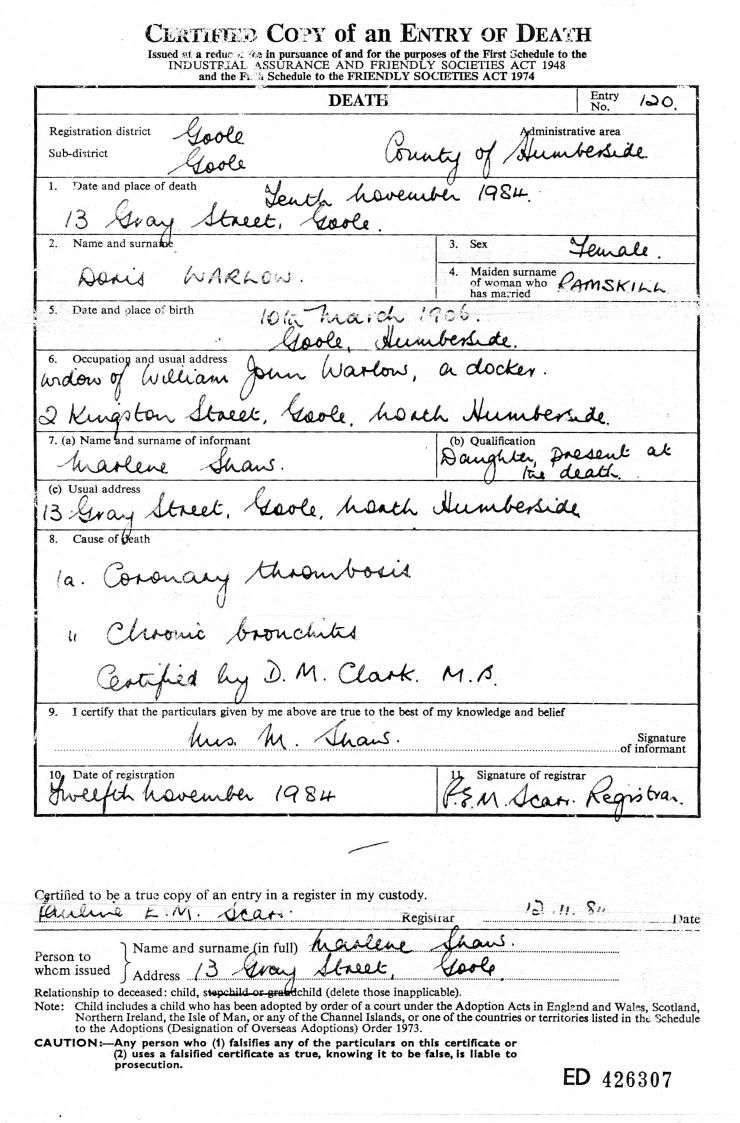 CERTIFIED COPY of an ENTRY OF DEATH
Issued at a reduced fee in pursuance of and for the purposes of the First Schedule to the
INDUSTRIAL ASSURANCE AND FRIENDLY SOCIETIES ACT 1948
and the Fifth Schedule to the FRIENDLY SOCIETIES ACT 1974
DEATH
Entry No. 120.
Registration district Goole
Administrative area
Sub-district Goole
County of Humberside
1. Date and place of death Tenth November 1984.
13 Gray Street, Goole.
2. Name and surname
Doris WARLOW.
3. Sex Female.
4. Maiden surname of woman who has married RAMSKILL
5. Date and place of birth 10th March 1906.
Goole, Humberside.
6. Occupation and usual address
widow of William John Warlow, a docker.
2 Kingston Street, Goole, North Humberside.
7. (a) Name and surname of informant
Marlene Shaw.
(b) Qualification
Daughter, present at
the death.
(c) Usual address
13 Gray Street, Goole, North Humberside
8. Cause of death
1a. Coronary thrombosis
11 Chronic bronchitis
Certified by D. M. Clark. M.B.
9. I certify that the particulars given by me above are true to the best of my knowledge and belief
Mrs. M. Shaw.
Signature of informant
10. Date of registration
Twelfth November 1984
11. Signature of registrar
P.E.M. Scarr. Registrar.
Certified to be a true copy of an entry in a register in my custody.
Pauline E.M. Scarr. Registrar 12.11.84 Date
Person to whom issued
Name and surname (in full) Marlene Shaw.
Address 13 Gray Street, Goole
Relationship to deceased: child, stepchild or grandchild (delete those inapplicable).
Note: Child includes a child who has been adopted by order of a court under the Adoption Acts in England and Wales, Scotland,
Northern Ireland, the Isle of Man, or any of the Channel Islands, or one of the countries or territories listed in the Schedule
to the Adoptions (Designation of Overseas Adoptions) Order 1973.
CAUTION:—Any person who (1) falsifies any of the particulars on this certificate or
(2) uses a falsified certificate as true, knowing it to be false, is liable to
prosecution.
ED 426307